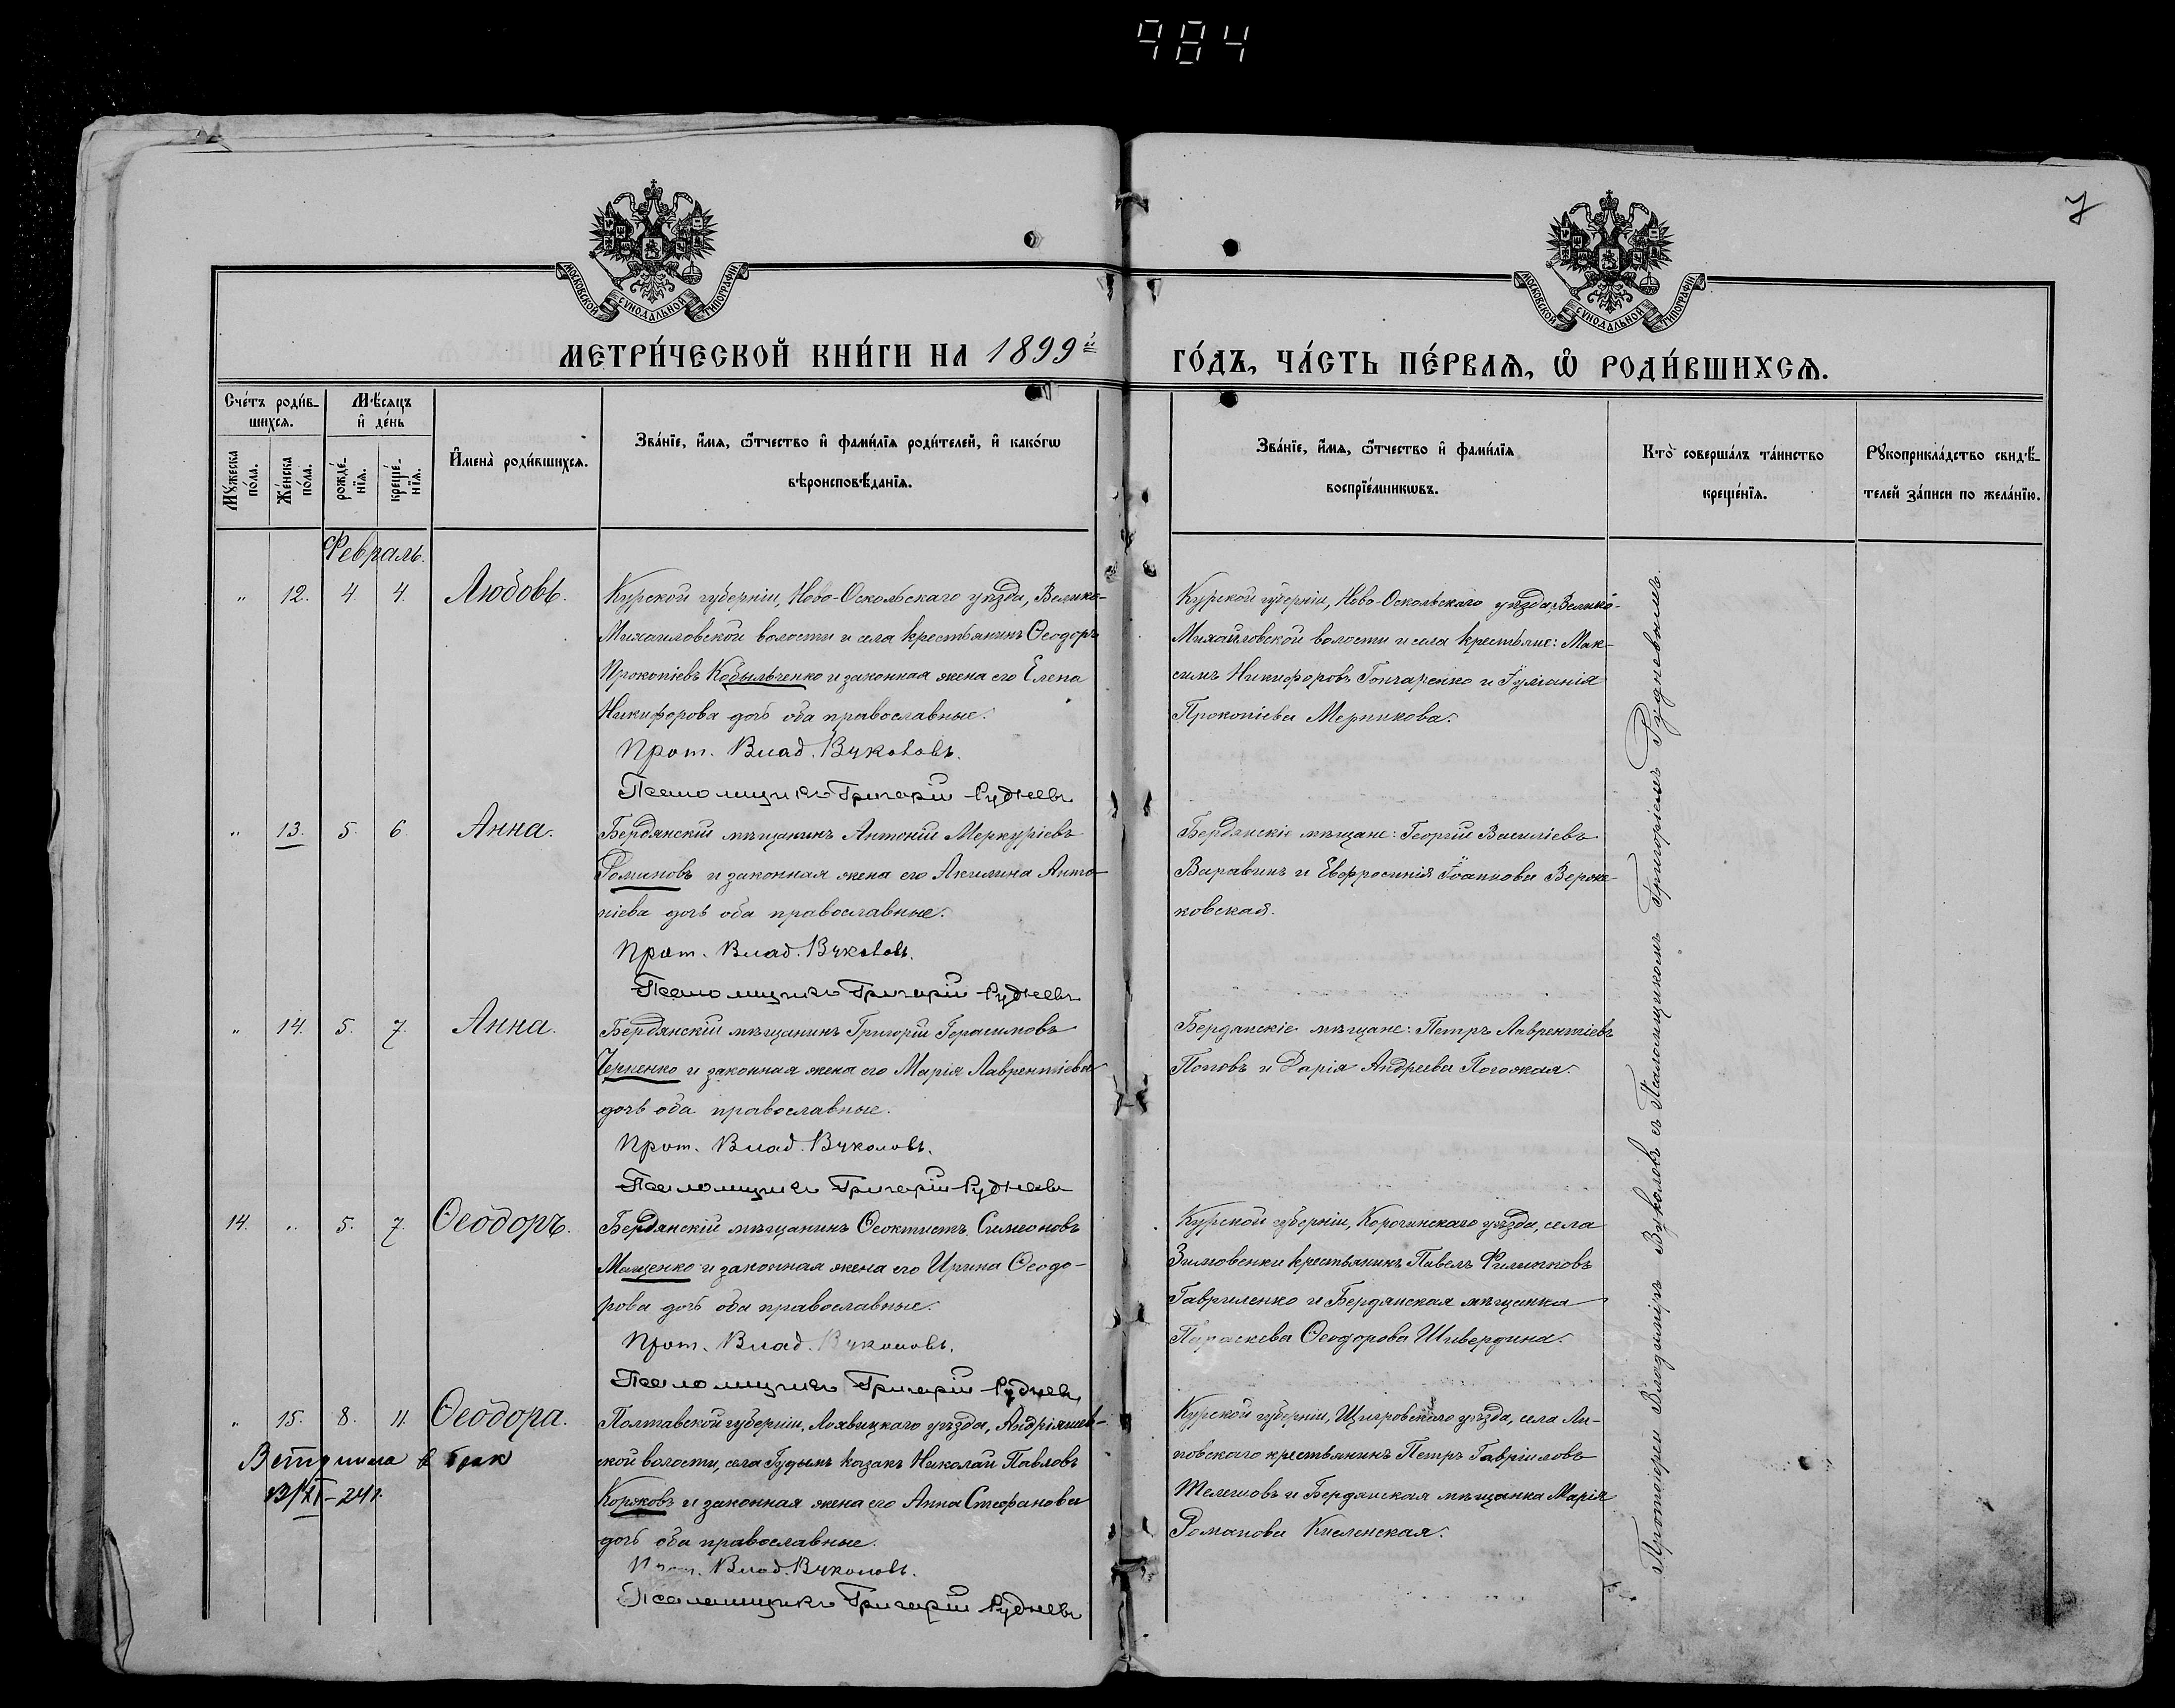 984
7
МОСКОВСКОЙ СѴНОДАЛЬНОЙ ТИПОГРАФІИ
МОСКОВСКОЙ СѴНОДАЛЬНОЙ ТИПОГРАФІИ
МЕТРИ́ЧЕСКОЙ КНИ́ГИ НА 1899й
ГО́ДЪ, ЧА́СТЬ ПЕ́РВАѦ, Ѽ РОДИ́ВШИХСѦ.
Сче́тъ роди́в-
шихсѧ.
Мꙋ́жеска по́ла.
Же́нска по́ла.
Мѣ́сѧцъ
и҆ де́нь
рожде́-
нїѧ.
креще́-
нїѧ.
И҆мена̀ роди́вшихсѧ.
Зва́нїе, и҆́мѧ, ѻ҆́тчество и҆ фами́лїѧ роди́телей, и҆ како́гѡ
вѣроисповѣ́данїѧ.
Зва́нїе, и҆́мѧ, ѻ҆́тчество и҆ фами́лїѧ
воспрїе́мникѡвъ.
Кто̀ соверша́лъ та́инство
креще́нїѧ.
Рꙋкоприкла́дство свидѣ́-
телей за́писи по жела́нїю.
Февраль.
" 12. 4. 4. Любовь.
Курской губерніи, Ново-Оскольскаго уѣзда, Велико-
Михайловской волости и села крестьянинъ Ѳеодоръ
Прокопіевъ Кобыльченко и законная жена его Елена
Никифорова дочь оба православные.
Прот. Влад. Вуколовъ.
Псаломщикъ Григорій Рудневъ
Курской губерніи, Ново-Оскольскаго уѣзда, Велико-
Михайловской волости и села крестьяне: Мак-
симъ Никифоровъ Гончаренко и Іуліанія
Прокопіева Мерникова.
" 13. 5. 6. Анна.
Бердянскій мѣщанинъ Антоній Меркуріевъ
Фоминовъ и законная жена его Акилина Анто-
ніева дочь оба православные.
Прот. Влад. Вуколовъ.
Псаломщикъ Григорій Рудневъ
Бердянскіе мѣщане: Георгій Василіевъ
Варавинъ и Евфросинія Іоаннова Верж-
ковская.
" 14. 5. 7. Анна.
Бердянскій мѣщанинъ Григорій Герасимовъ
Черненко и законная жена его Марія Лаврентіева
дочь оба православные.
Прот. Влад. Вуколовъ.
Псаломщикъ Григорій Рудневъ
Бердянскіе мѣщане: Петръ Лаврентіевъ
Поповъ и Дарія Андреева
14. " 5. 7. Ѳеодоръ.
Бердянскій мѣщанинъ Ѳеоктистъ Симеоновъ
Мащенко и законная жена его Ирина Ѳеодо-
рова дочь оба православные.
Прот. Влад. Вуколовъ.
Псаломщикъ Григорій Рудневъ
Курской губерніи, Корочинскаго уѣзда, села
Зимовенки крестьянинъ Павелъ Филипповъ
Гавриленко и Бердянская мѣщанка
Параскева Ѳеодорова Шивердина.
" 15. 8. 11. Ѳеодора.
Вступила в брак
Полтавской губерніи, Лохвицкаго уѣзда, Андріяшев-
ской волости, села Гудымъ казакъ Николай Павловъ
Коржовъ и законная жена его Анна Стефанова
дочь оба православные.
Прот. Влад. Вуколовъ.
Псаломщикъ Григорій Рудневъ
Курской губерніи, Щигровскаго уѣзда, села Ли-
повскаго крестьянинъ Петръ Гавріиловъ
Телешовъ и Бердянская мѣщанка Марія
Романова Киленская.
Протоіерей Владиміръ Вуколовъ съ Псаломщикомъ Григоріемъ Рудневымъ.